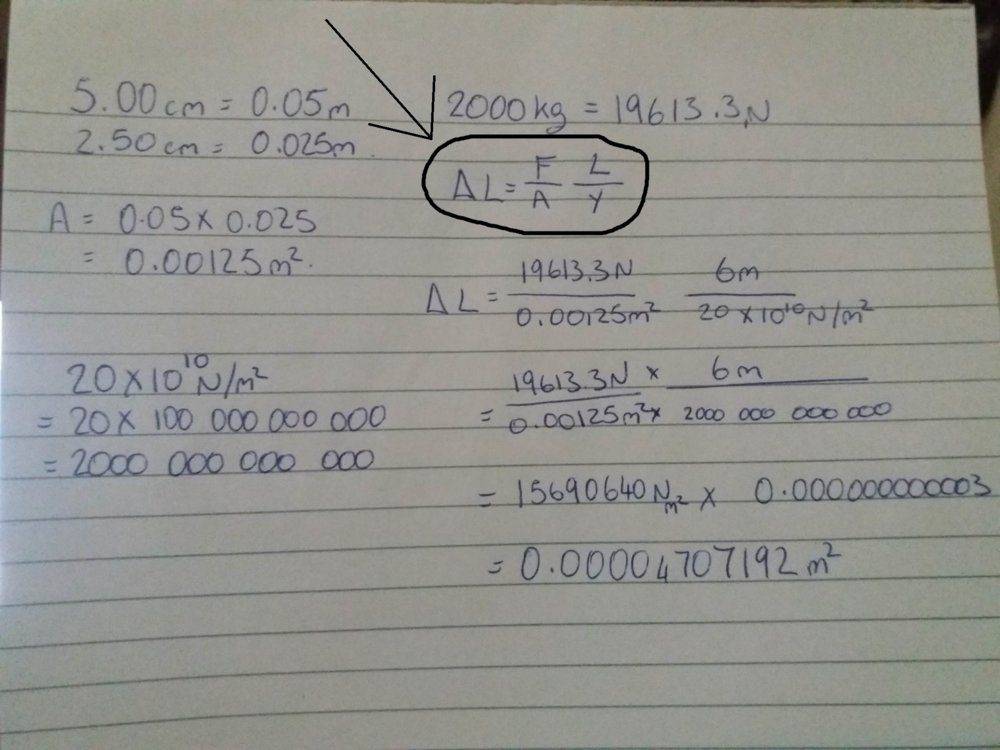 5.00cm = 0.05m
2.50cm = 0.025m.
A = 0.05 x 0.025
= 0.00125m².
20 x 10¹⁰ N/m²
= 20 x 100 000 000 000
= 2000 000 000 000
2000kg = 19613.3N
ΔL = F/A L/Y
ΔL = 19613.3N/0.00125m² 6m/20 x 10¹⁰ N/m²
= 19613.3N/0.00125m² x 6m/2000 000 000 000
= 15690640 N/m² x 0.000000000003
= 0.00004707192 m²